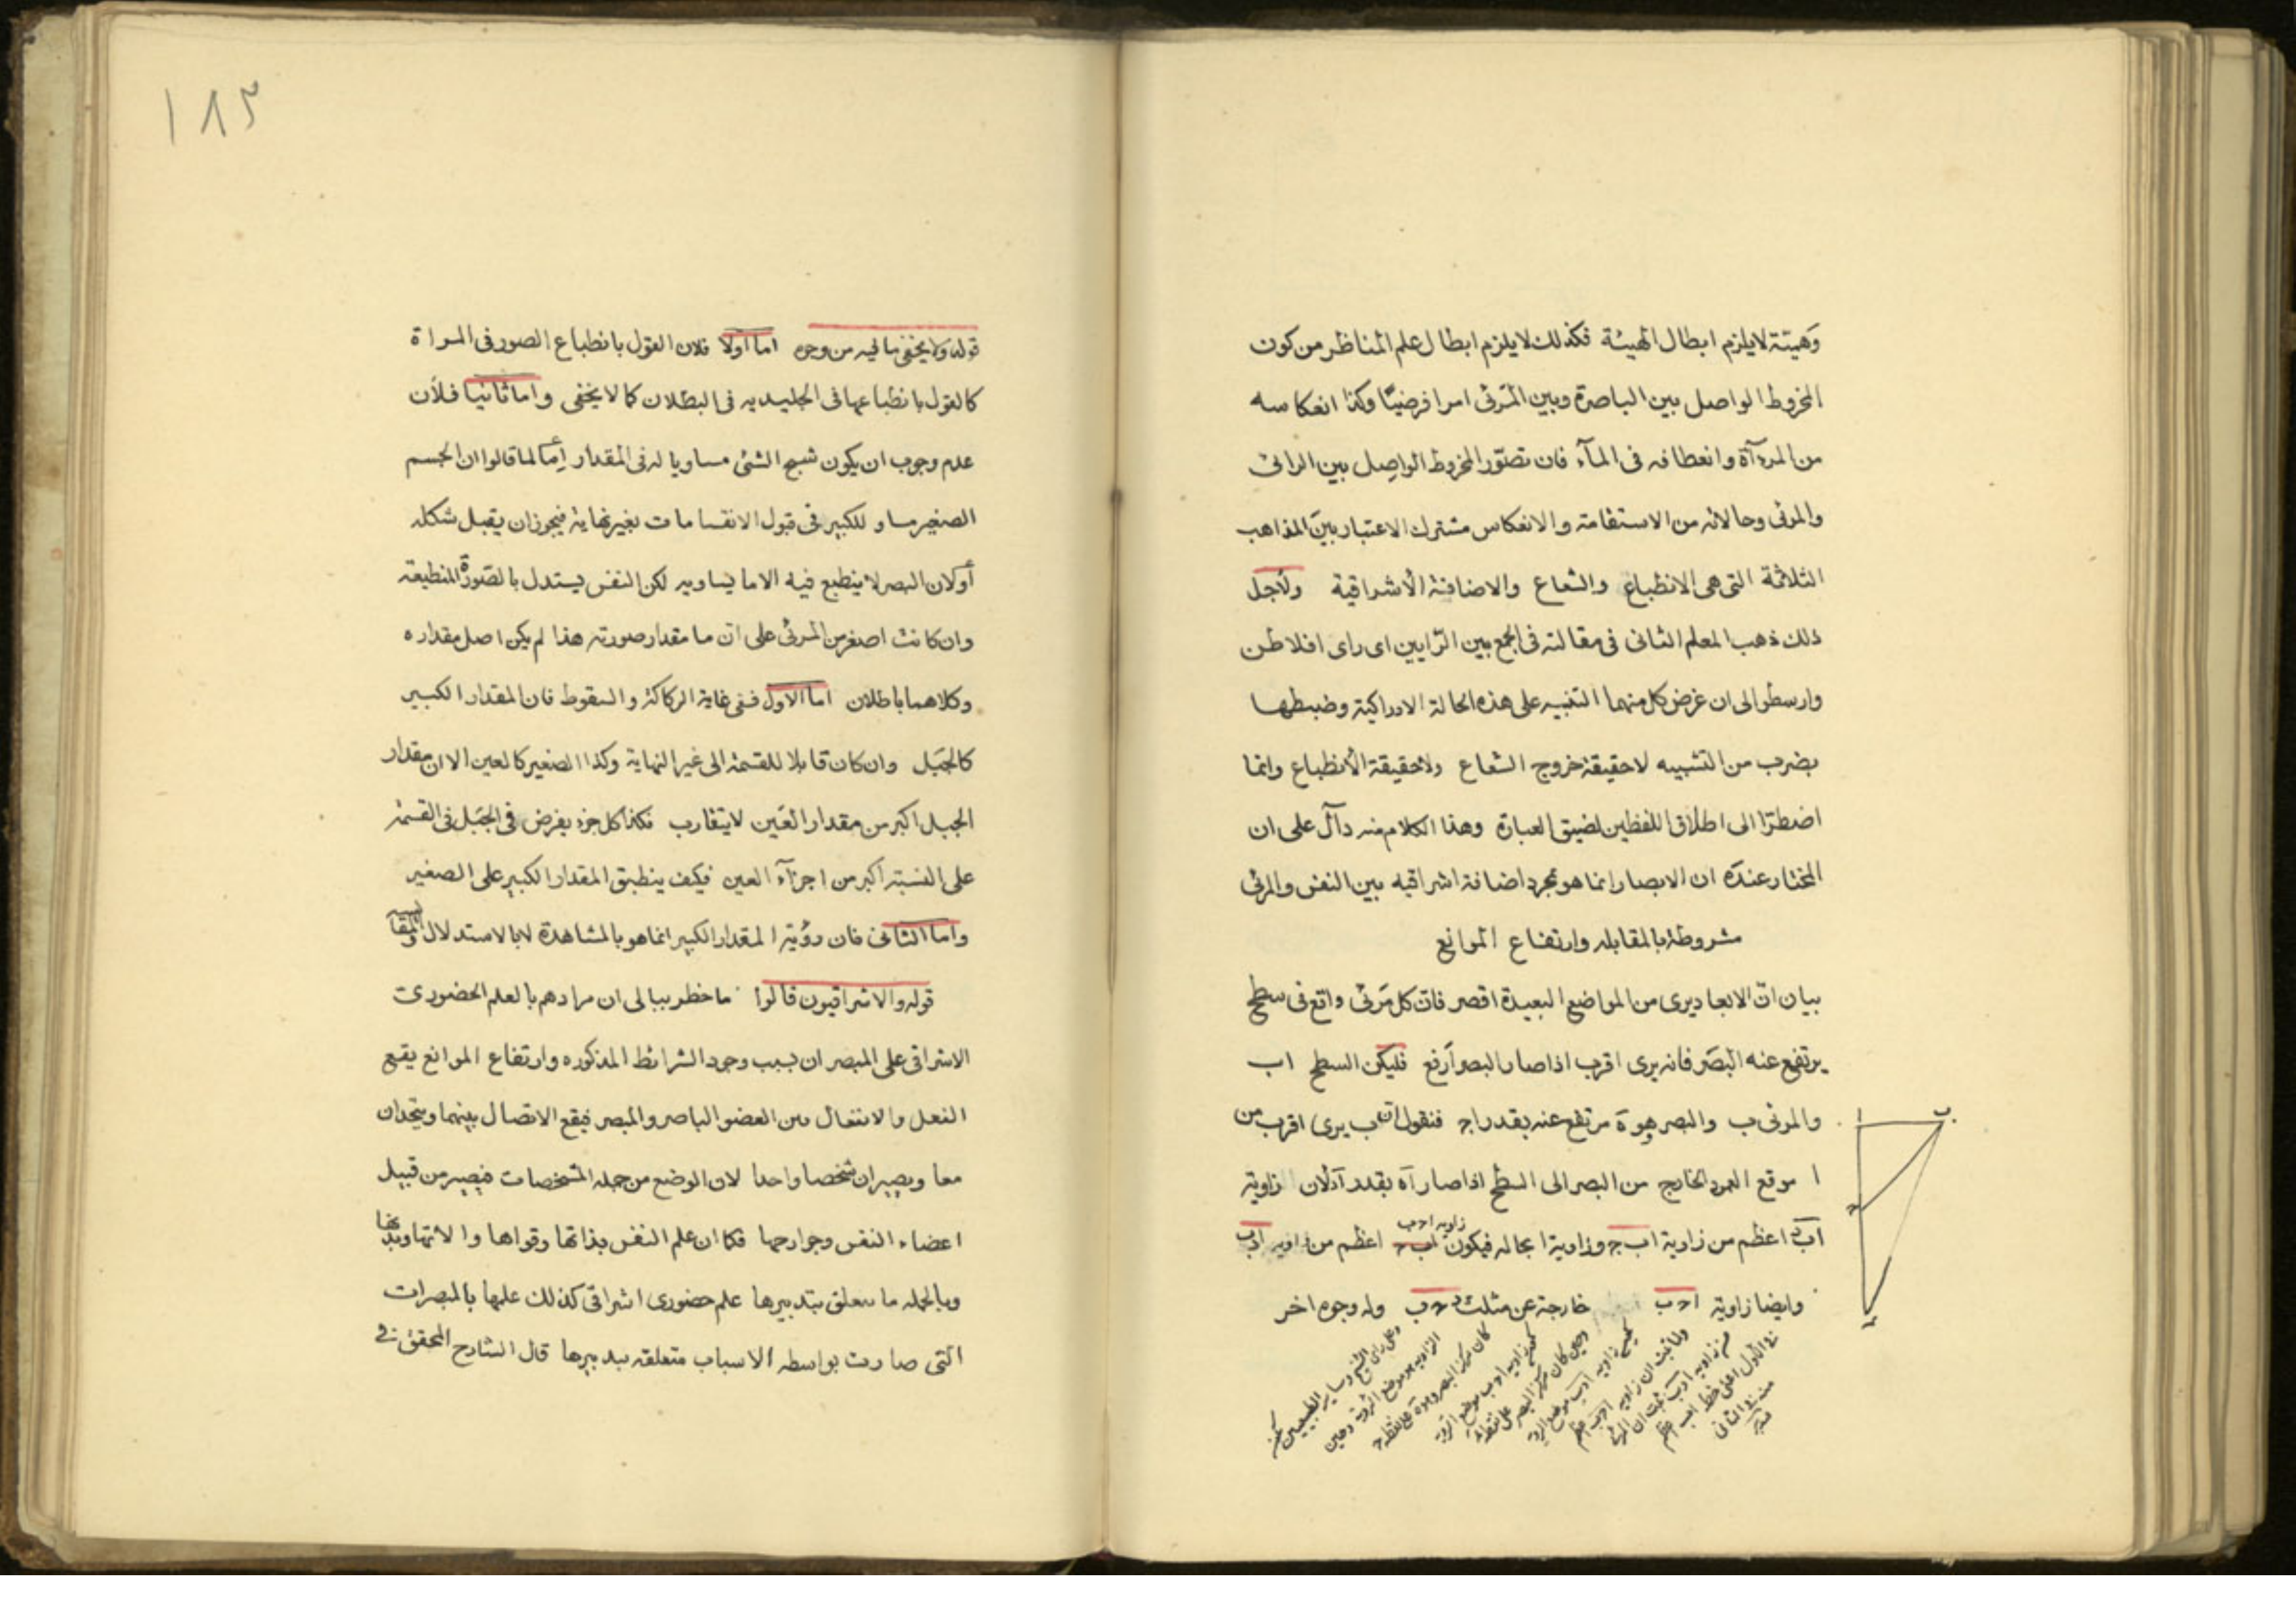 وهيئته لا يلزم ابطال الهيئة فكذلك لا يلزم ابطال علم المناظر من كون
المخروط الواصل بين الباصرة وبين المرئى امرا فرضيّا وكذا انعكاسه
من المرءآة وانعطافه فى المآء فان تصوّر المخروط الواصل بين الرائى
والمرئى وحالاته من الاستقامة والانعكاس مشترك الاعتبار بين المذاهب
الثلاثة التى هى الانطباع والشعاع والاضافة الاشراقية ولاجل
ذلك ذهب المعلم الثانى فى مقالته فى الجمع بين الرّايين اى راى افلاطن
وارسطو الى ان غرض كل منهما التنبيه على هذه الحالة الادراكية وضبطها
بضرب من التشبيه لا حقيقة خروج الشعاع ولا حقيقة الانطباع وانما
اضطرّا الى اطلاق اللفظين لضيق العبارة وهذا الكلام منه دآلّ على ان
المختار عنده ان الابصار انما هو مجرد اضافة اشراقيه بين النفس والمرئى
مشروطة بالمقابله وارتفاع الموانع
بيان انّ الابعاد يرى من المواضع البعيدة اقصر فانّ كل مرئى واقع فى سطح
يرتفع عنه البصر فانه يرى اقرب اذا صار البصر ارفع فليكن السطح اب
والمرئى ب والبصر هو ة مرتفع عنه بقدر اج فنقول ان ب يرى اقرب من
ا موقع العمود الخارج من البصر الى السطح اذا صار آه بقدر آد لان زاوية
اب د اعظم من زاوية اب ج وزاوية ا بحاله فيكون زاويه اج ب اعظم من زاويه ادب
وايضا زاوية اج ب خارجة عن مثلث د ج ب وله وجوه اخر
ب
ا
ج
د
وعلى راى الشيخ وساير الطبيعيين
الزاويه هو موضع الرؤية وحين
كان مركز البصر وهو ة على نقطة ج
زاويه اج ب موضع الرؤية
وحين كان مركز البصر على نقطة د
زاويه ادب موضع الرؤية
ولما ثبت ان زاويه اج ب اعظم
من زاويه ادب ثبت ان المرئى
فى الاول اعنى خط اب اعظم
منه فى الثانى
١٨٣
قوله ولا يخفى ما فيه من وجوه اما اولا فلان القول بانطباع الصور فى المراة
كالقول بانطباعها فى الجليديه فى البطلان كما لا يخفى واما ثانيا فلأن
عدم وجوب ان يكون شبح الشئ مساويا له فى المقدار إمّا لما قالوا ان الجسم
الصغير مساو للكبير فى قبول الانقسامات بغير نهاية فيجوز ان يقبل شكله
أو لان البصر لا ينطبع فيه الا ما يساويه لكن النفس يستدل بالصّورة المنطبعة
وان كانت اصغر من المرئى على انّ ما مقدار صورته هذا لم يكن اصل مقداره
وكلاهما باطلان اما الاول ففى غاية الركاكة والسقوط فان المقدار الكبير
كالجبل وان كان قابلا للقسمة الى غير النهاية وكذا الصغير كالعين الا ان مقدار
الجبل اكبر من مقدار العين لا يتقارب فكذا كل جزء يفرض فى الجبل فى القسمة
على النسبة اكبر من اجزآء العين فكيف ينطبق المقدار الكبير على الصغير
واما الثانى فان رؤية المقدار الكبير انما هو بالمشاهدة لا بالاستدلال والمقايسه
قوله والاشراقيون قالوا ما خطر ببالى ان مرادهم بالعلم الحضورى
الاشراقى على المبصر ان بسبب وجود الشرائط المذكوره وارتفاع الموانع يقع
الفعل والانفعال بين العضو الباصر والمبصر فيقع الاتصال بينهما ويتحدان
معا ويصيران شخصا واحدا لان الوضع من جمله المشخصات فيصير من قبيل
اعضاء النفس وجوارحها فكما ان علم النفس بذاتها وقواها والاتها وبدنها
وبالجمله ما يتعلق بتدبيرها علم حضورى اشراقى كذلك علمها بالمبصرات
التى صارت بواسطه الاسباب متعلقه بتدبيرها قال الشارح المحقق فى